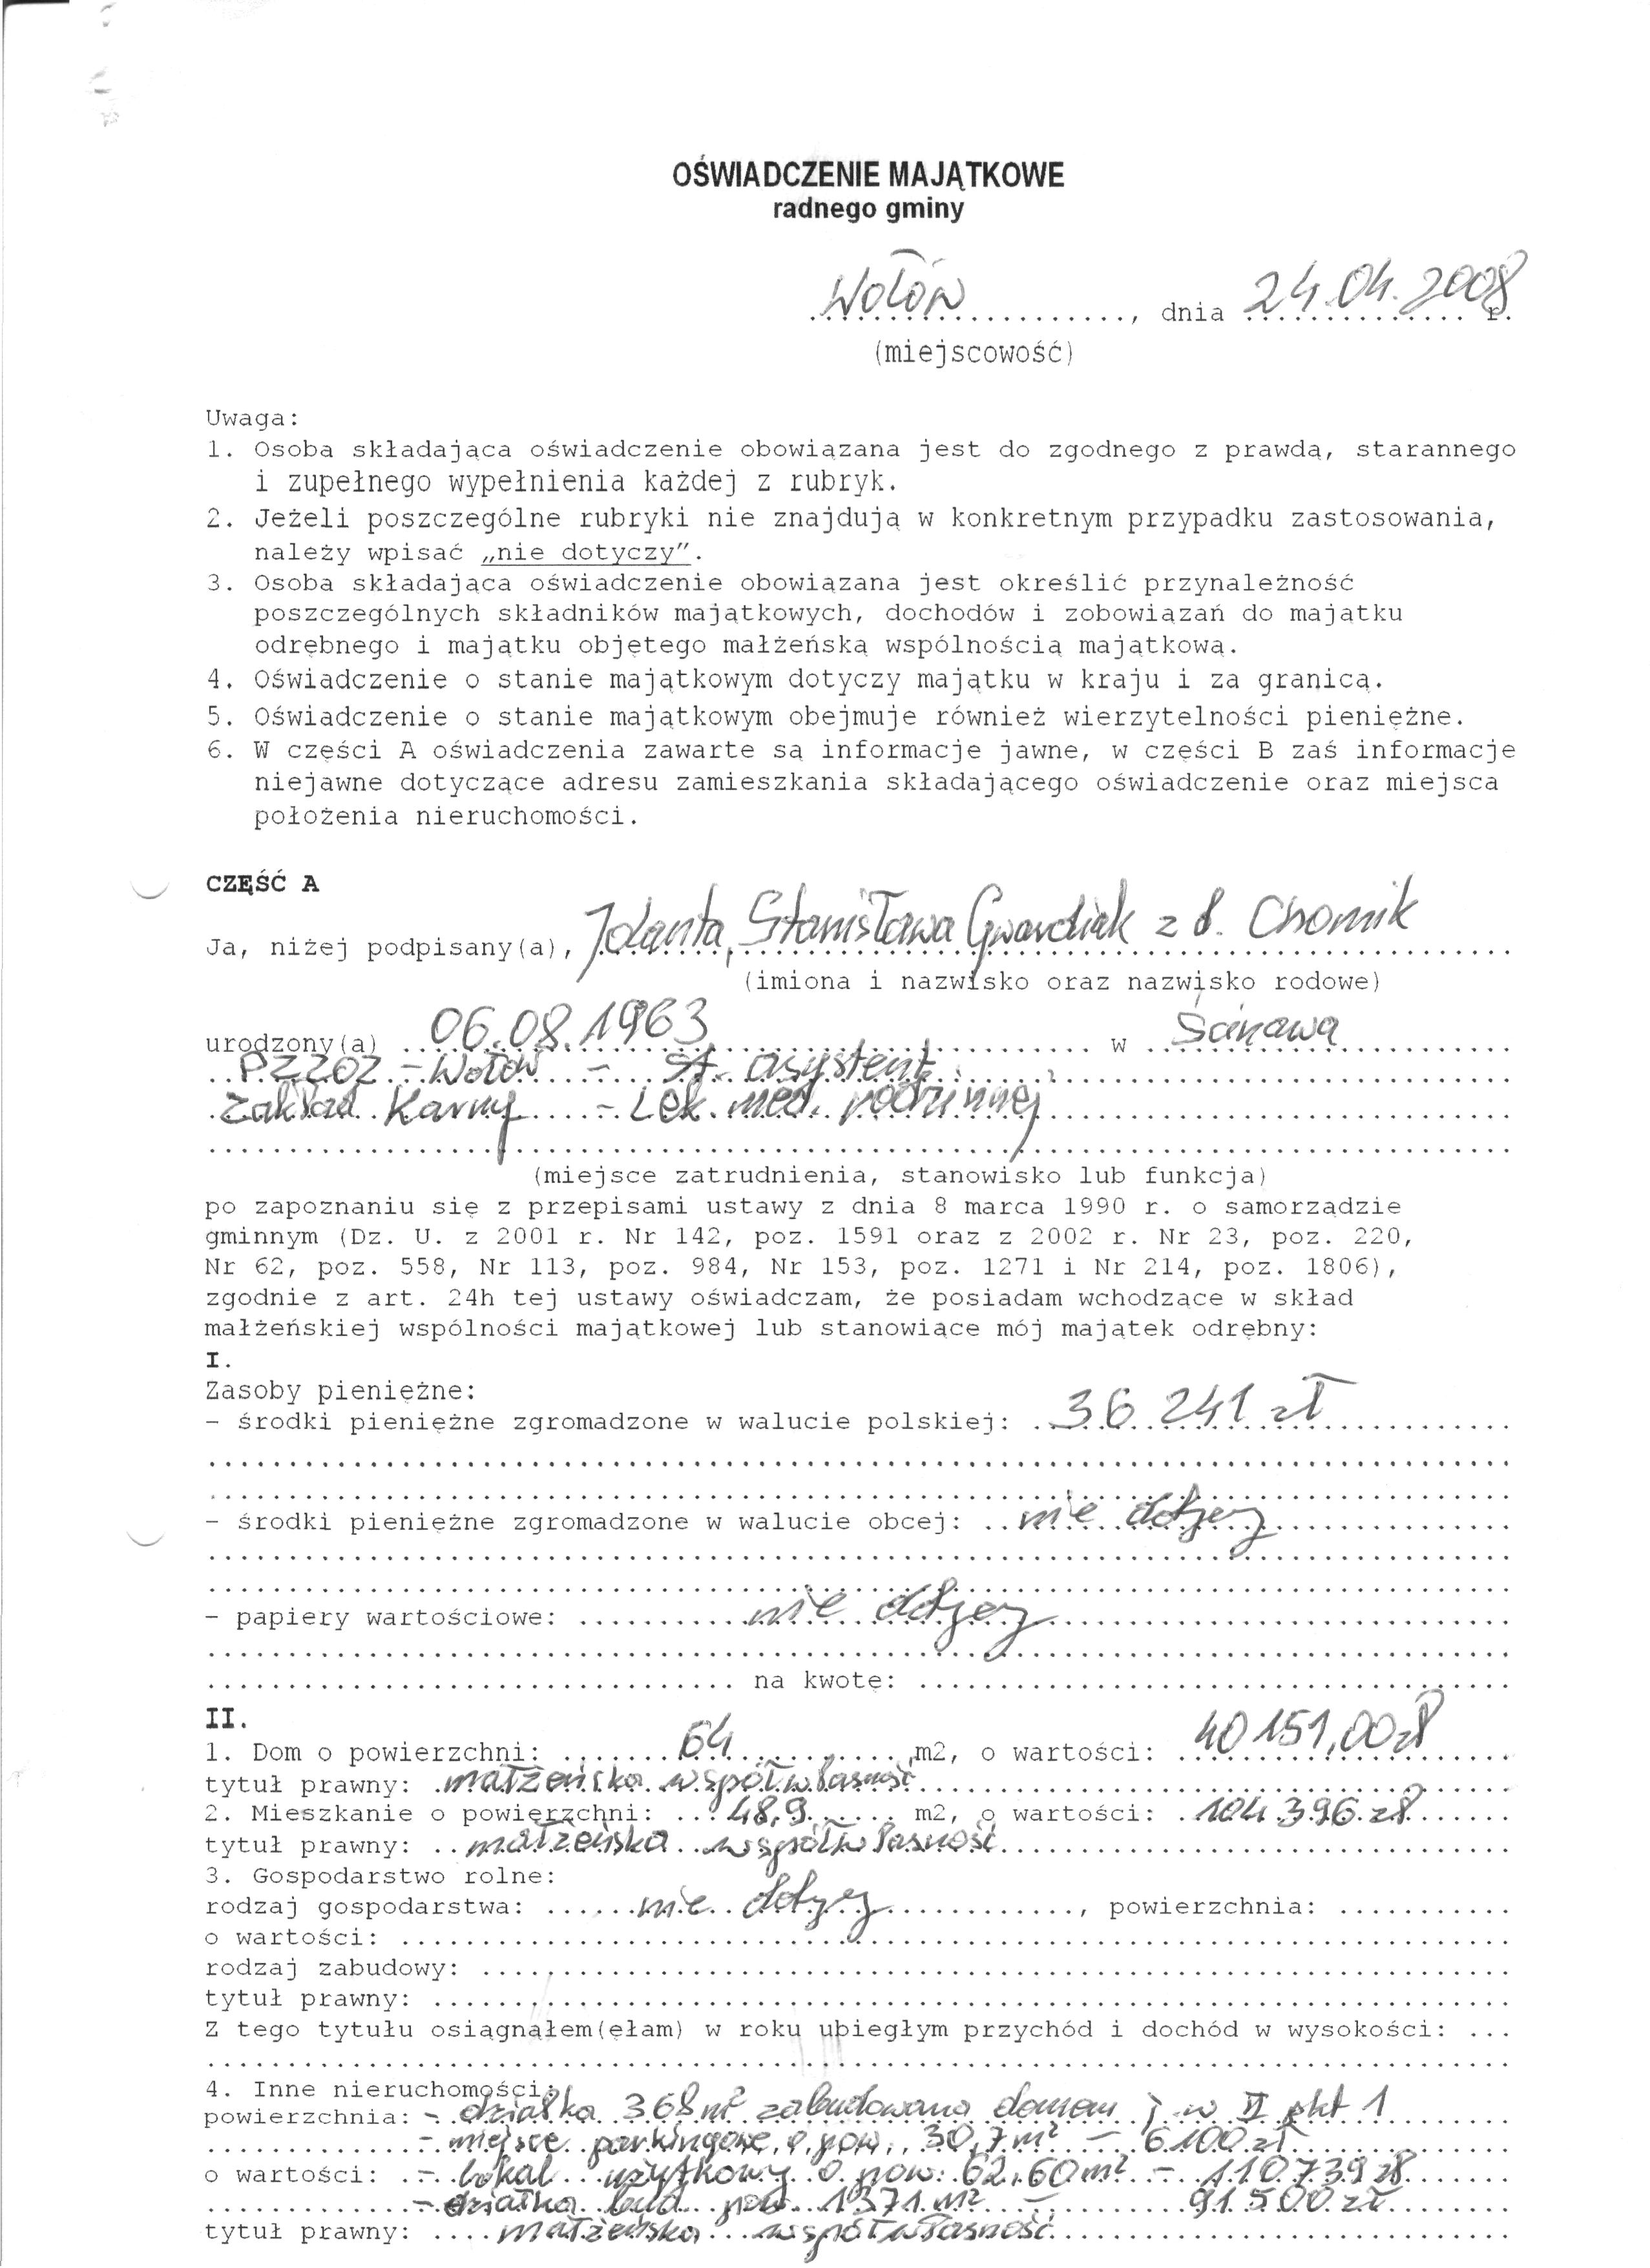 OŚWIADCZENIE MAJĄTKOWE
radnego gminy
Wołów, dnia 24.04.2008 r.
(miejscowość)
Uwaga:
1. Osoba składająca oświadczenie obowiązana jest do zgodnego z prawdą, starannego
i zupełnego wypełnienia każdej z rubryk.
2. Jeżeli poszczególne rubryki nie znajdują w konkretnym przypadku zastosowania,
należy wpisać „nie dotyczy".
3. Osoba składająca oświadczenie obowiązana jest określić przynależność
poszczególnych składników majątkowych, dochodów i zobowiązań do majątku
odrębnego i majątku objętego małżeńską wspólnością majątkową.
4. Oświadczenie o stanie majątkowym dotyczy majątku w kraju i za granicą.
5. Oświadczenie o stanie majątkowym obejmuje również wierzytelności pieniężne.
6. W części A oświadczenia zawarte są informacje jawne, w części B zaś informacje
niejawne dotyczące adresu zamieszkania składającego oświadczenie oraz miejsca
położenia nieruchomości.
CZĘŚĆ A
Ja, niżej podpisany(a), Jolanta, Stanisława Gwardiak z d. Chomik
(imiona i nazwisko oraz nazwisko rodowe)
urodzony(a) 06.08.1963 w Ścinawa
PZZOZ - Wołów - St. asystent
Zakład Karny - Lek. med. rodzinnej
(miejsce zatrudnienia, stanowisko lub funkcja)
po zapoznaniu się z przepisami ustawy z dnia 8 marca 1990 r. o samorządzie
gminnym (Dz. U. z 2001 r. Nr 142, poz. 1591 oraz z 2002 r. Nr 23, poz. 220,
Nr 62, poz. 558, Nr 113, poz. 984, Nr 153, poz. 1271 i Nr 214, poz. 1806),
zgodnie z art. 24h tej ustawy oświadczam, że posiadam wchodzące w skład
małżeńskiej wspólności majątkowej lub stanowiące mój majątek odrębny:
I.
Zasoby pieniężne:
- środki pieniężne zgromadzone w walucie polskiej: 36 241 zł
- środki pieniężne zgromadzone w walucie obcej: nie dotyczy
- papiery wartościowe: nie dotyczy
na kwotę:
II.
1. Dom o powierzchni: 64 m2, o wartości: 40 151,00 zł
tytuł prawny: małżeńska współwłasność
2. Mieszkanie o powierzchni: 48,9 m2, o wartości: 104 396 zł
tytuł prawny: małżeńska współwłasność
3. Gospodarstwo rolne:
rodzaj gospodarstwa: nie dotyczy, powierzchnia:
o wartości:
rodzaj zabudowy:
tytuł prawny:
Z tego tytułu osiągnąłem(ęłam) w roku ubiegłym przychód i dochód w wysokości:
4. Inne nieruchomości:
powierzchnia: - działka 368 m² zabudowana domem j.w II pkt 1
- miejsce parkingowe o pow. 30,7 m² - 6100 zł
o wartości: - lokal użytkowy o pow. 62,60 m² - 110 739 zł
- działka bud. pow. 1371 m² - 91 500 zł
tytuł prawny: małżeńska współwłasność